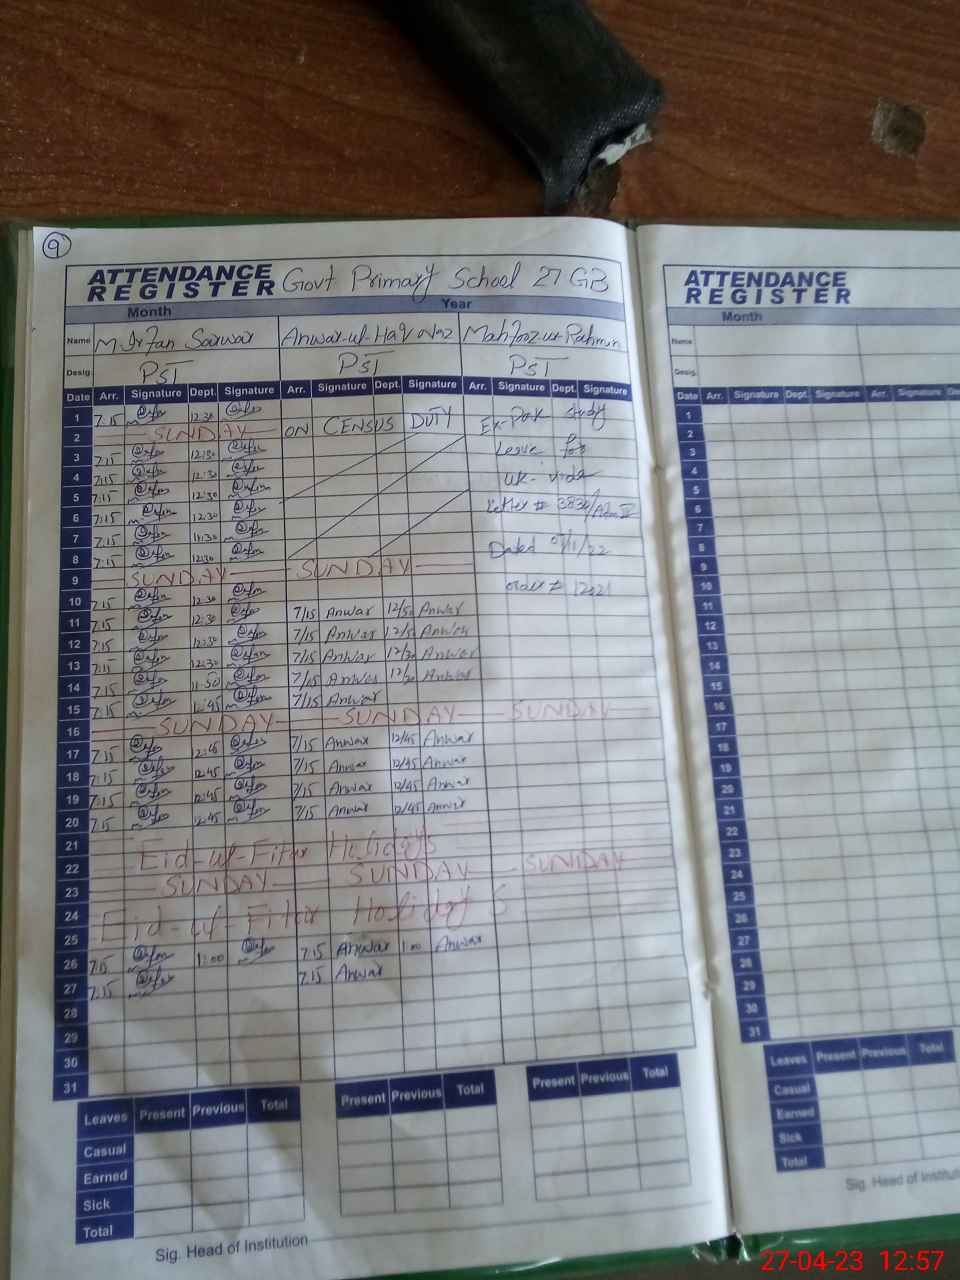 9
ATTENDANCE REGISTER Govt Primary School 27 GB
Month Year
Name M Irfan Sarwar Anwar-ul-Haq Mahfooz-ur-Rahman
Desig. PST PST PST
Date Arr. Signature Dept. Signature Arr. Signature Dept. Signature Arr. Signature Dept. Signature
1 7:15 12:30 ON CENSUS DUTY Ex-Pak study
2 SUNDAY
3 7:15 12:30 Leave for
4 7:15 12:30 UK-
5 7:15 12:30 Letter #
6 7:15 12:30
7 7:15 11:30 Dated
8 7:15 12:30
9 SUNDAY SUNDAY order #
10 7:15 12:30
11 7:15 12:30 7/15 Anwar Anwar
12 7:15 12:30 7/15 Anwar Anwar
13 7:15 12:30 7/15 Anwar 12/30 Anwar
14 7:15 11:50 7/15 Anwar 12/30 Anwar
15 7:15 7/15 Anwar
16 SUNDAY SUNDAY SUNDAY
17 7:15 12:45 7/15 Anwar 12/45 Anwar
18 7:15 12:45 7/15 Anwar 12/45 Anwar
19 7:15 12:45 7/15 Anwar 12/45 Anwar
20 7:15 12:45 7/15 Anwar 12/45 Anwar
21 Eid-ul-Fitar Holidays
22
23 SUNDAY SUNDAY SUNDAY
24 Eid-ul-Fitar Holidays
25
26 7:15 1:00 7:15 Anwar 1:00 Anwar
27 7:15 7:15 Anwar
28
29
30
31
Leaves Present Previous Total Present Previous Total Present Previous Total
Casual
Earned
Sick
Total
Sig. Head of Institution
ATTENDANCE REGISTER
Month
Name
Desig.
Date Arr. Signature Dept. Signature Arr. Signature
1
2
3
4
5
6
7
8
9
10
11
12
13
14
15
16
17
18
19
20
21
22
23
24
25
26
27
28
29
30
31
Leaves Present Previous Total
Casual
Earned
Sick
Total
Sig. Head of
27-04-23 12:57